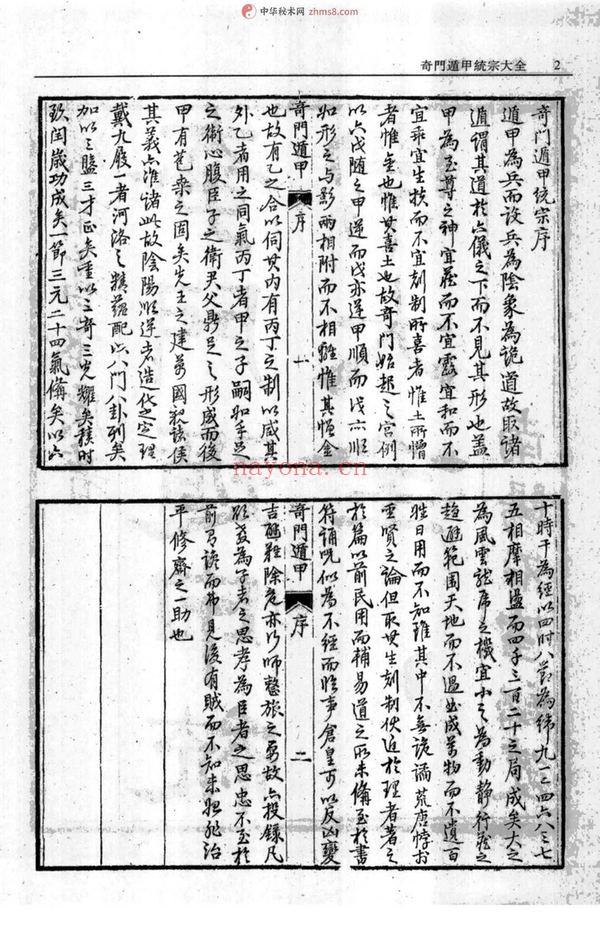 中华秘术网 zhms8.com
奇門遁甲統宗大全 2
奇門遁甲統宗序
遁甲為兵而設兵為陰象為詭道故取諸
遁謂其道於六儀之下而不見其形也蓋
甲為至尊之神宜藏而不宜露宜和而不
宜乖宜生扶而不宜剋制所喜者惟土所憎
者惟金也惟其喜土也故奇門始起之宮例
以六戊隨之甲逆而戊亦逆甲順而戊亦順
如形之与影兩相附而不相離惟其憎金
奇門遁甲 序 一
也故有乙之合以伺其内有丙丁之制以威其
外乙者用之同氣丙丁者甲之子嗣如手足
之衛心腹臣子之衛尹父鼎足之形成而後
甲有苞桑之固矣先王之建萬國親諸侯
其義亦准諸此故陰陽順逆者造化之定理
戴九履一者河洛之精蘊配以八門八卦列矣
加以三盤三才正矣重以三奇三光耀矣積時
致閏歲功成矣一節三元二十四氣備矣以六
nayona.cn
十時干為經以四時八節為緯九一二四六八三七
五相摩相盪而四千三百二十之局成矣大之
為風雲龍虎之機宜小之為動靜行藏之
趨避範围天地而不過曲成萬物而不遺百
姓日用而不知雖其中不無詭譎荒唐悖於
聖賢之論但取其生剋制伏近於理者著之
於篇以前民用而輔易道之所未備至於書
符誦咒似為不經而臨事倉皇可以反凶變
奇門遁甲 序 二
吉難除危亦行師整旅之要故亦錄凡
以為子者之思孝為臣者之思忠不至於
前有讒而弗見後有賊而不知未始非治
平修齋之一助也